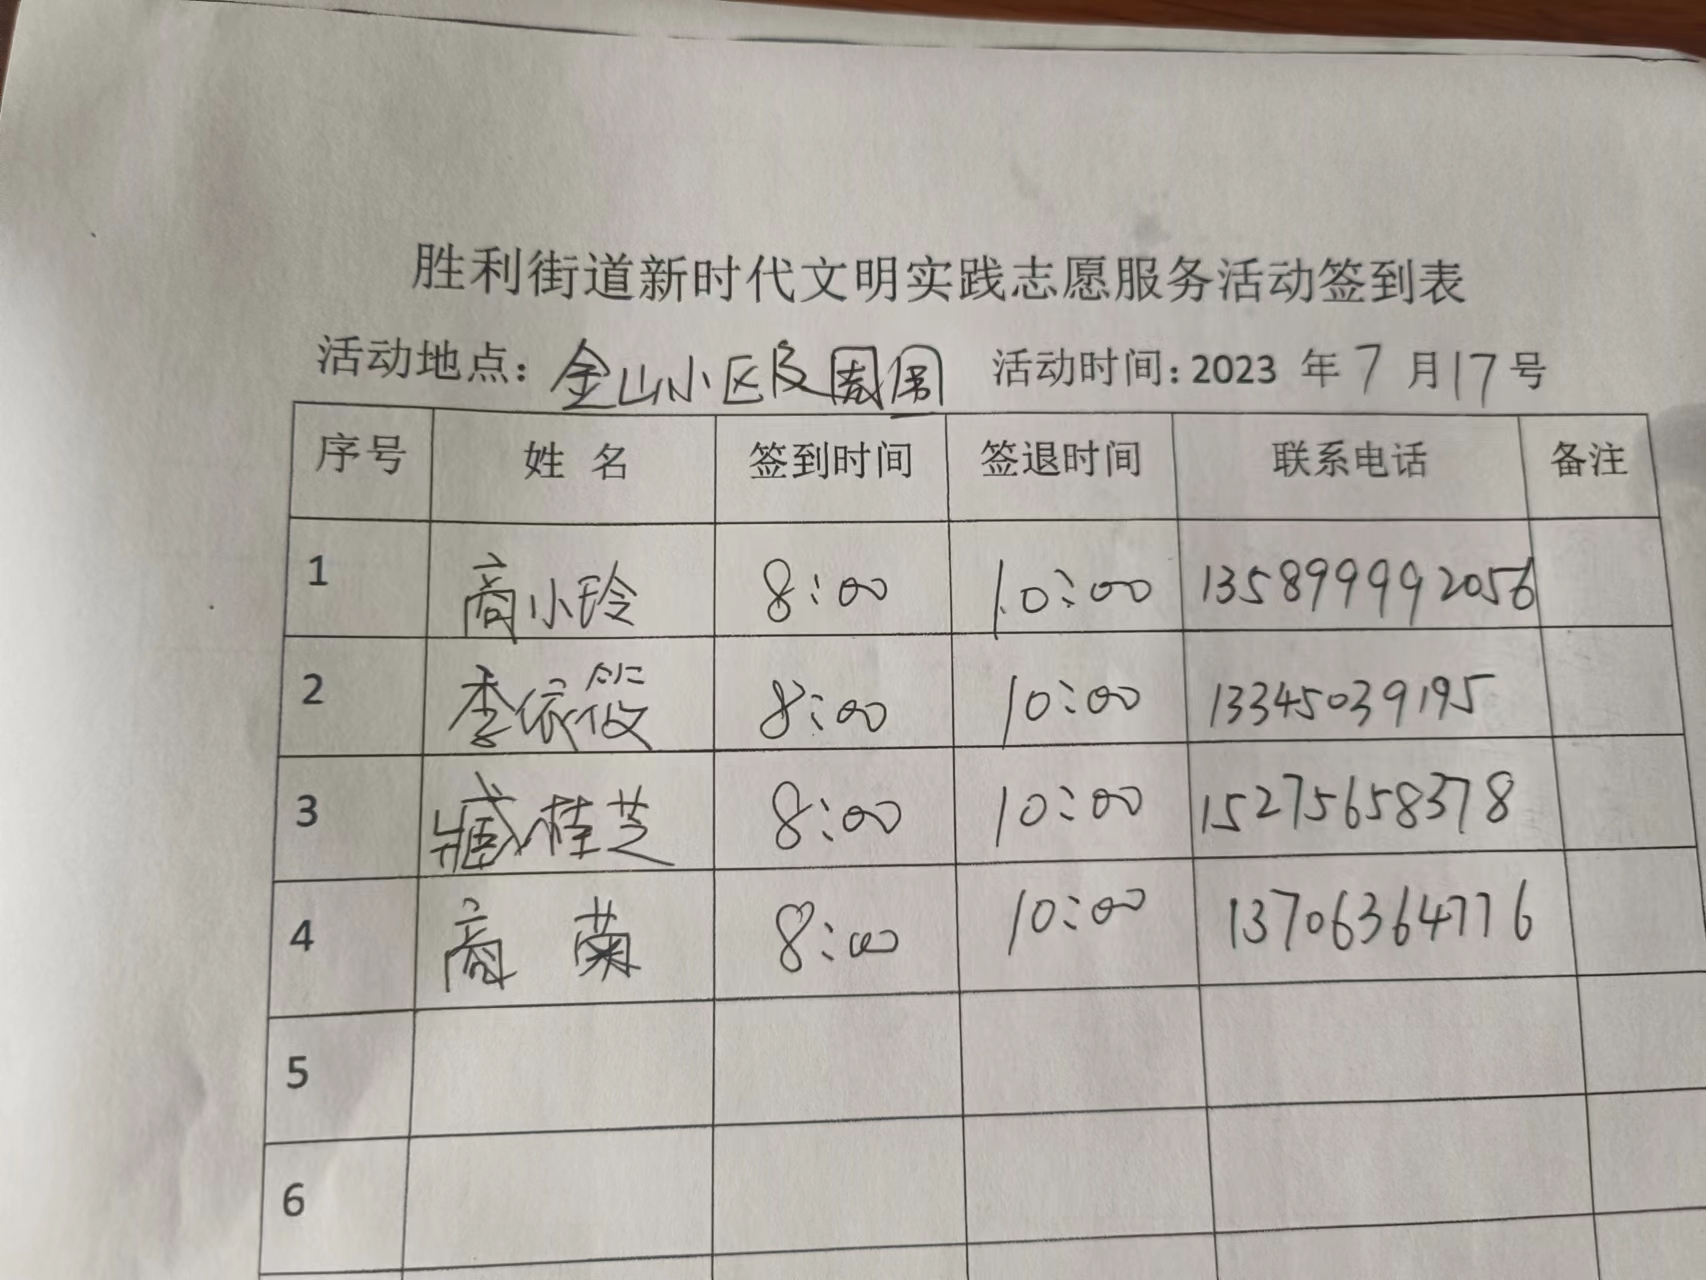 胜利街道新时代文明实践志愿服务活动签到表
活动地点：金山小区及周围 活动时间：2023 年 7 月 17 号
序号 姓 名 签到时间 签退时间 联系电话 备注
1 商小玲 8:00 10:00 135899992056
2 李依筱 8:00 10:00 13345039195
3 臧桂芝 8:00 10:00 15275658378
4 商 菊 8:00 10:00 13706364776
5
6